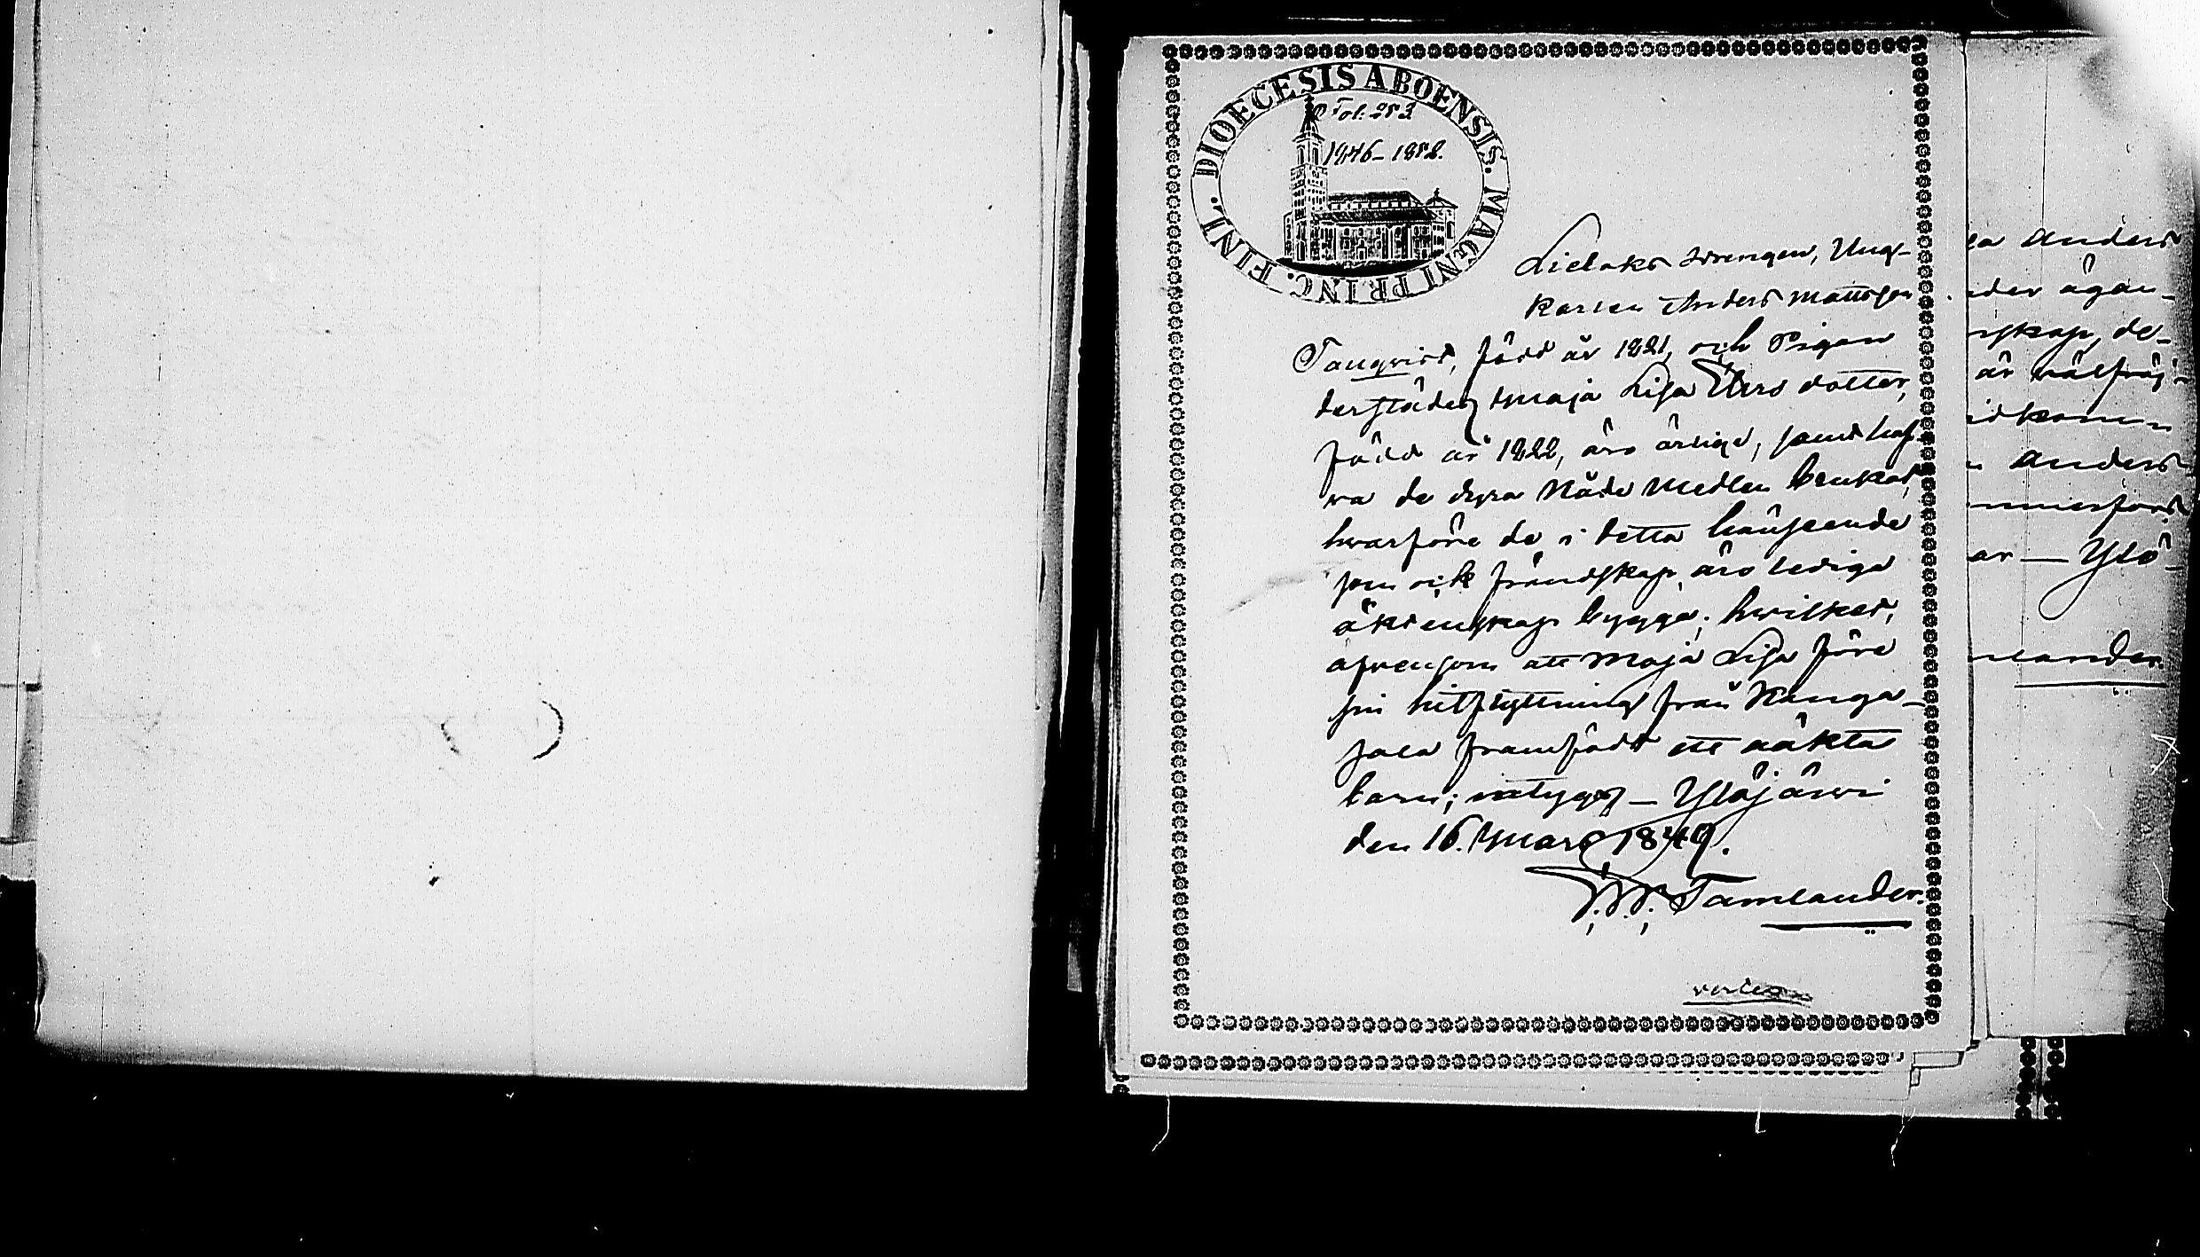 DIOECESIS ABOENSIS. MAGNI PRINC. FINL.
Fol: 253.
1846–1852.
Lielaks drengen, Ung-
karlen Anders Mattsson
Tanqvist, född år 1821, och Pigan
derstädes Maja Lisa Ehrs dotter,
född år 1822, äro ärlige, samt haf-
va de dyra Nåde Medlen brukat,
hvarföre de i detta hänseende
som ock frändskap, äro lediga
äktenskap bygga; hvilket,
äfvensom att Maja Lisa före
sin hitflyttning från Kanga-
sala framfödt ett oäkta
barn; intygas – Ylöjärvi
den 16. Mars 1849.
Tamlander.
vertera
anders
ägan-
skap, de-
är välfräj-
anders
ar — Ylö-
lander.